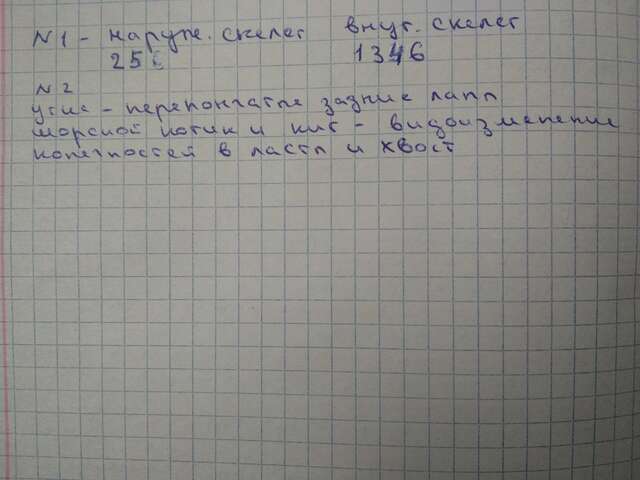 N 1 - наруж. скелет внут. скелет
25 1346
N 2
утис - перепончатые задние лапы
морской котик и кит - видоизменение
конечностей в ласты и хвост